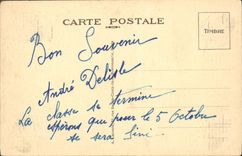 CARTE POSTALE
TIMBRE
Bon Souvenir
André Delisle
La classe se termine
espérons que pour le 5 Octobre
se sera fini